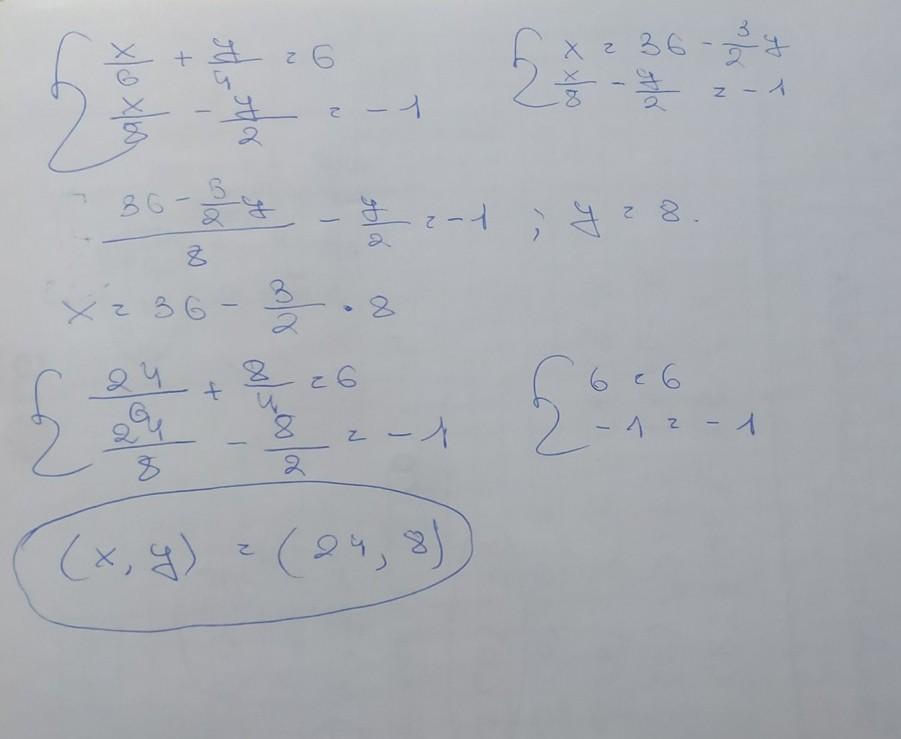 { x/6 + y/4 = 6
x/8 - y/2 = -1
{ x = 36 - 3/2 y
x/8 - y/2 = -1
(36 - 3/2 y)/8 - y/2 = -1 ; y = 8.
x = 36 - 3/2 · 8
{ 24/6 + 8/4 = 6
24/8 - 8/2 = -1
{ 6 = 6
-1 = -1
(x, y) = (24, 8)